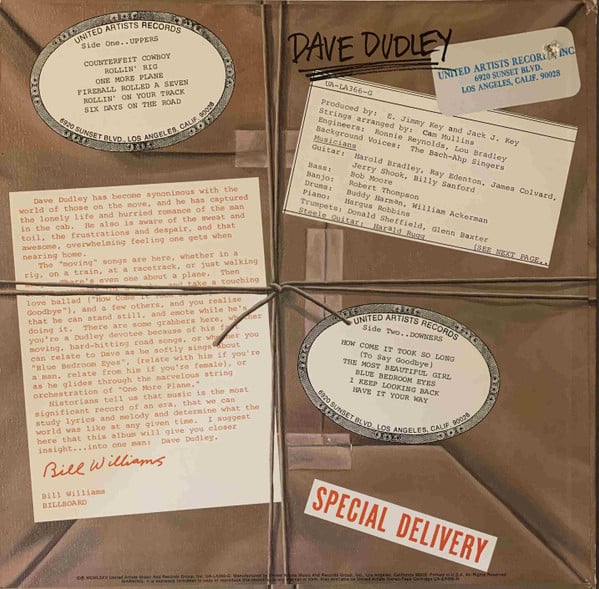 UNITED ARTISTS RECORDS
Side One..UPPERS
COUNTERFEIT COWBOY
ROLLIN' RIG
ONE MORE PLANE
FIREBALL ROLLED A SEVEN
ROLLIN' ON YOUR TRACK
SIX DAYS ON THE ROAD
6920 SUNSET BLVD., LOS ANGELES, CALIF. 90028
DAVE DUDLEY
UNITED ARTISTS RECORDS, INC.
6920 SUNSET BLVD.
LOS ANGELES, CALIF. 90028
UA-LA366-G
Produced by: E. Jimmy Key and Jack J. Key
Strings arranged by: Cam Mullins
Engineers: Ronnie Reynolds, Lou Bradley
Background Voices: The Bach-Ahp Singers
Musicians
Guitar: Harold Bradley, Ray Edenton, James Colvard,
Jerry Shook, Billy Sanford
Bass: Bob Moore
Banjo: Robert Thompson
Drums: Buddy Harman, William Ackerman
Piano: Hargus Robbins
Trumpets: Donald Sheffield, Glenn Baxter
Steele Guitar: Harald Rugg
(SEE NEXT PAGE..
Dave Dudley has become synonimous with the
world of those on the move, and he has captured
the lonely life and hurried romance of the man
in the cab. He also is aware of the sweat and
toil, the frustrations and despair, and that
awesome, overwhelming feeling one gets when
nearing home.
The "moving" songs are here, whether in a
rig, on a train, at a racetrack, or just walking
There's even one about a plane. Then
and take a touching
love ballad ("How Come it
Goodbye"), and a few others, and you realize
that he can stand still, and emote while he's
doing it. There are some grabbers here, whether
you're a Dudley devotee because of his
moving, hard-hitting road songs, or whether you
can relate to Dave as he softly sings about
"Blue Bedroom Eyes", (relate with him if you're
a man, relate from him if you're female), or
as he glides through the marvelous string
orchestration of "One More Plane."
Historians tell us that music is the most
significant record of an era, that we can
study lyrics and melody and determine what the
world was like at any given time. I suggest
here that this album will give you closer
insight...into one man: Dave Dudley.
Bill Williams
Bill Williams
BILLBOARD
UNITED ARTISTS RECORDS
Side Two..DOWNERS
HOW COME IT TOOK SO LONG
(To Say Goodbye)
THE MOST BEAUTIFUL GIRL
BLUE BEDROOM EYES
I KEEP LOOKING BACK
HAVE IT YOUR WAY
6920 SUNSET BLVD., LOS ANGELES, CALIF. 90028
SPECIAL DELIVERY